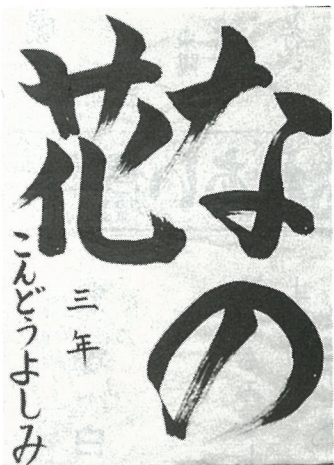 なの
花
三年
こんどうよしみ